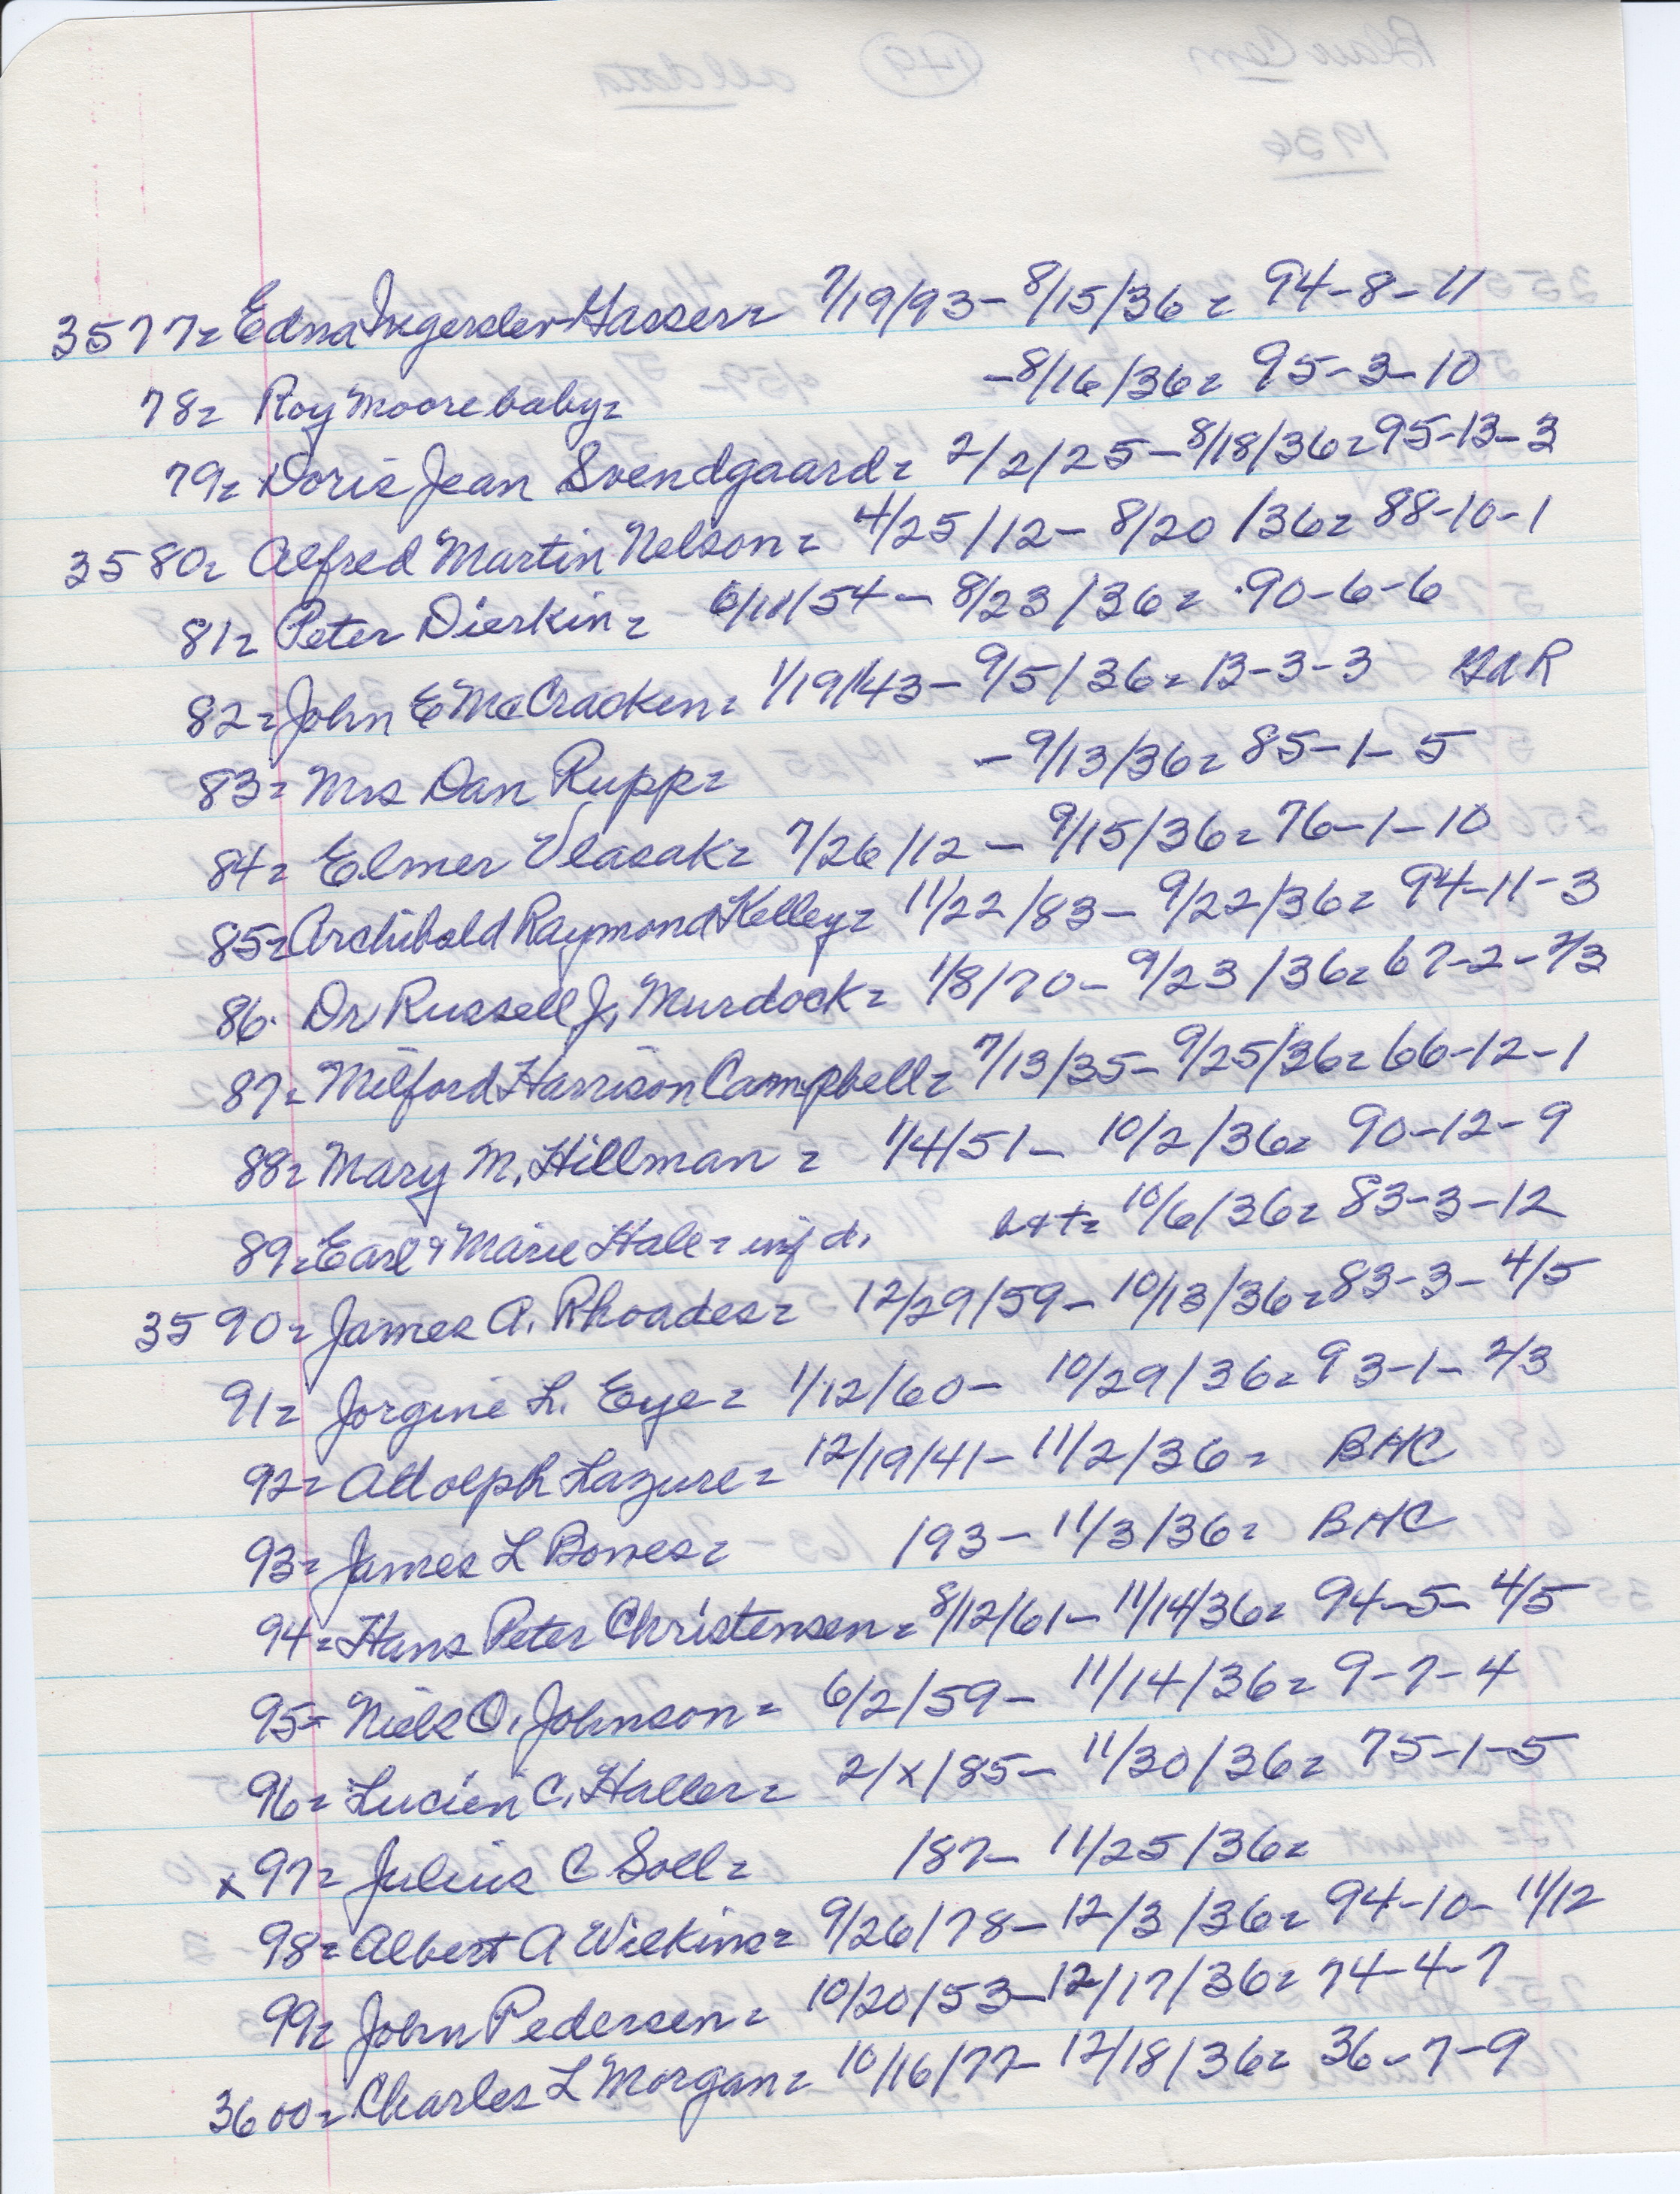 3577= Edna Ingersler Gasser= 7/19/93-8/15/36= 94-8-11
78= Roy Moore baby= -8/16/36= 95-3-10
79= Doris Jean Svendgaard= 2/2/25-8/18/36=95-13-3
3580= Alfred Martin Nelson= 4/25/12-8/20/36= 88-10-1
81= Peter Dierkin= 6/11/54-8/23/36= 90-6-6
82= John E McCracken= 1/19/43-9/5/36= 13-3-3 GAR
83= Mrs Dan Rupp= -9/13/36= 85-1-5
84= Elmer Vlasak= 7/26/12-9/15/36= 76-1-10
85= Archibald Raymond Kelley= 11/22/83-9/22/36= 94-11-3
86. Dr Russell J. Murdock= 1/8/70-9/23/36= 67-2-2/3
87= Milford Harrison Campbell= 7/13/35-9/25/36= 66-12-1
88= Mary M. Hillman= 1/4/51-10/2/36= 90-12-9
89= Earl & Marie Hale= inf d. 10/6/36= 83-3-12
3590= James A. Rhoades= 12/29/59-10/13/36=83-3-4/5
91= Jorgine L. Eye= 1/12/60-10/29/36= 93-1-2/3
92= Adolph Lazure= 12/19/41-11/2/36= BHC
93= James L Bowes= /93-11/3/36= BHC
94= Hans Peter Christensen= 8/12/61-11/14/36= 94-5-4/5
95= Niels O. Johnson= 6/2/59-11/14/36= 9-7-4
96= Lucien C. Haller= 2/x/85-11/30/36= 75-1-5
x 97= Julius C Soll= /87-11/25/36=
98= Albert A Wilkins= 9/26/78-12/3/36= 94-10-11/12
99= John Pedersen= 10/20/53-12/17/36= 74-4-7
3600= Charles L Morgan= 10/16/77-12/18/36= 36-7-9